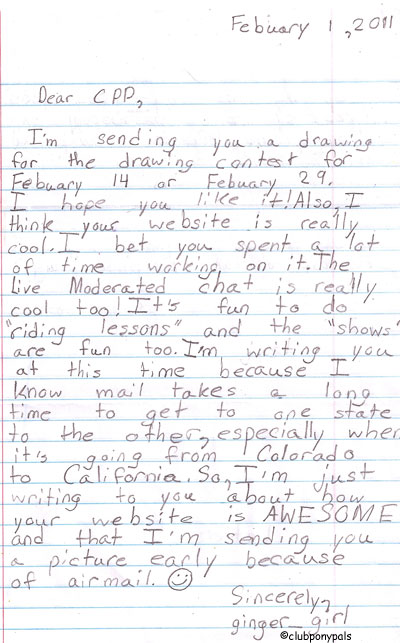 Febuary 1, 2011
Dear CPP,
I'm sending you a drawing
for the drawing contest for
Febuary 14 or Febuary 29.
I hope you like it! Also, I
think your website is really
cool. I bet you spent a lot
of time working on it. The
Live Moderated chat is really
cool too! It's fun to do
"riding lessons" and the "shows"
are fun too. I'm writing you
at this time because I
know mail takes a long
time to get to one state
to the other, especially when
it's going from Colorado
to California. So, I'm just
writing to you about how
your website is AWESOME
and that I'm sending you
a picture early because
of airmail. ☺
Sincerely,
ginger_girl
©clubponypals